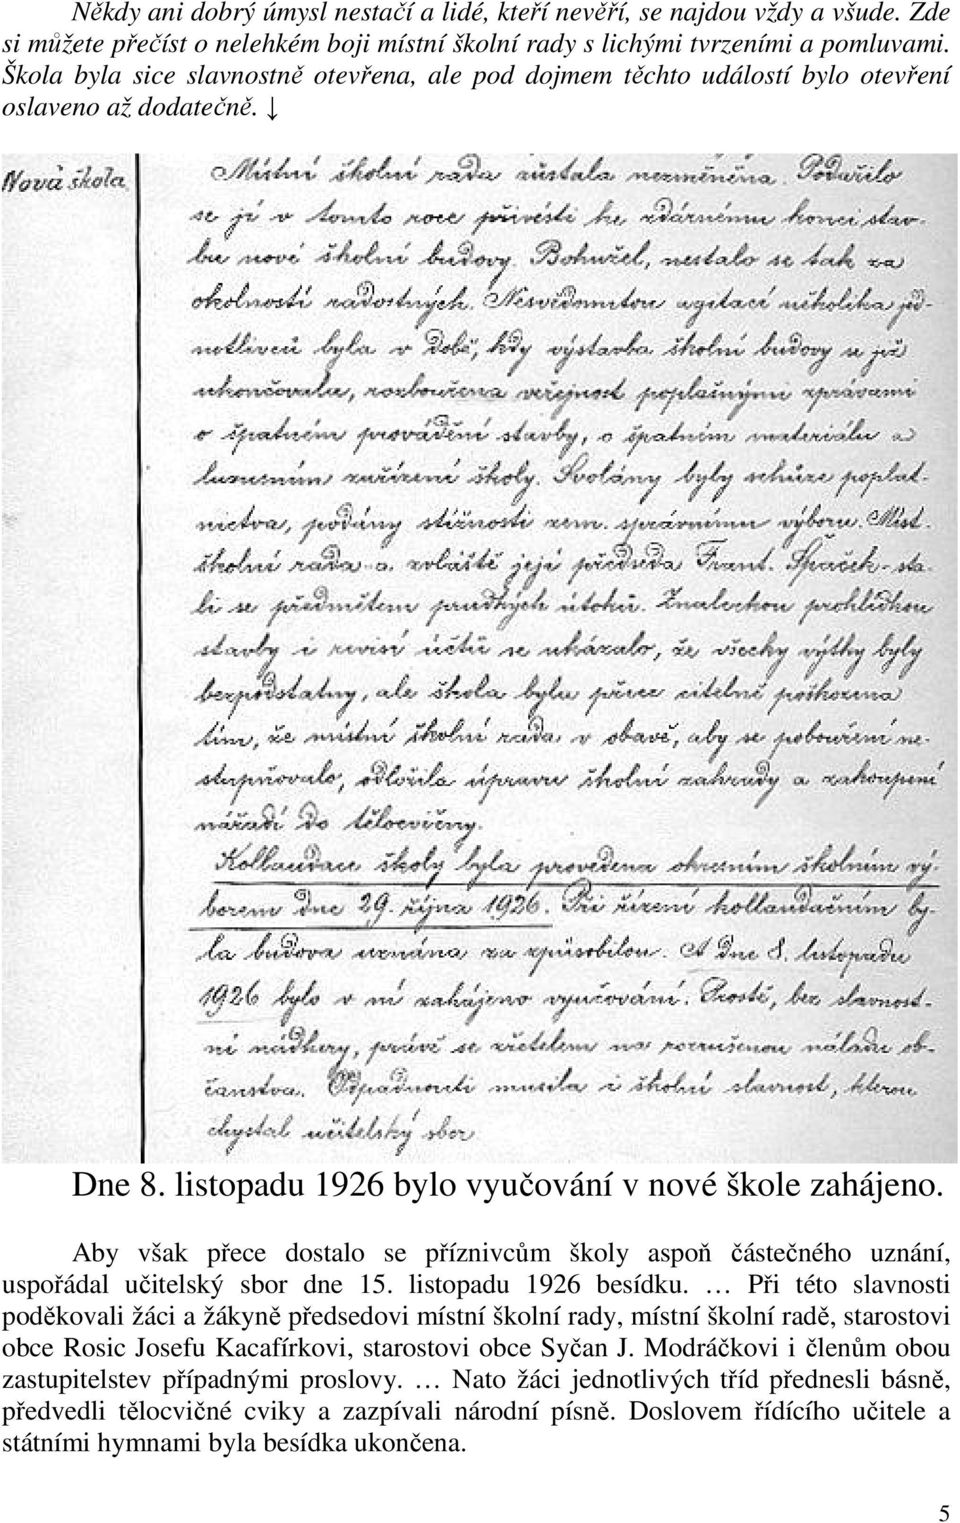 Někdy ani dobrý úmysl nestačí a lidé, kteří nevěří, se najdou vždy a všude. Zde
si můžete přečíst o nelehkém boji místní školní rady s lichými tvrzeními a pomluvami.
Škola byla sice slavnostně otevřena, ale pod dojmem těchto událostí bylo otevření
oslaveno až dodatečně. ↓
Nová škola.
Místní školní rada zůstala nezměněna. Podařilo
se jí v tomto roce přivésti ke zdárnému konci stav-
bu nové školní budovy. Bohužel, nestalo se tak za
okolností radostných. Nesvědomitou agitací několika jed-
notlivců byla v době, kdy výstavba školní budovy se již
ukončovala, rozbouřena veřejnost poplašnými zprávami
o špatném provádění stavby, o špatném materiálu a
luxusním zařízení školy. Svolány byly schůze poplat-
nictva, podány stížnosti zem. správnímu výboru. Míst.
školní rada a zvláště její předseda Frant. Špaček sta-
li se předmětem prudkých útoků. Znaleckou prohlídkou
stavby i revisí účtů se ukázalo, že všecky výtky byly
bezpodstatny, ale škola byla přece citelně poškozena
tím, že místní školní rada v obavě, aby se pobouření ne-
stupňovalo, odložila úpravu školní zahrady a zakoupení
nářadí do tělocvičny.
Kollaudace školy byla provedena okresním školním vý-
borem dne 29. října 1926. Při řízení kollaudačním by-
la budova uznána za způsobilou. A dne 8. listopadu
1926 bylo v ní zahájeno vyučování. Prostě, bez slavnost-
ní nádhery, právě se zřetelem na rozrušenou náladu ob-
čanstva. Odpadnouti musila i školní slavnost, kterou
chystal učitelský sbor.
Dne 8. listopadu 1926 bylo vyučování v nové škole zahájeno.
Aby však přece dostalo se příznivcům školy aspoň částečného uznání,
uspořádal učitelský sbor dne 15. listopadu 1926 besídku. … Při této slavnosti
poděkovali žáci a žákyně předsedovi místní školní rady, místní školní radě, starostovi
obce Rosic Josefu Kacafírkovi, starostovi obce Syčan J. Modráčkovi i členům obou
zastupitelstev případnými proslovy. … Nato žáci jednotlivých tříd přednesli básně,
předvedli tělocvičné cviky a zazpívali národní písně. Doslovem řídícího učitele a
státními hymnami byla besídka ukončena.
5